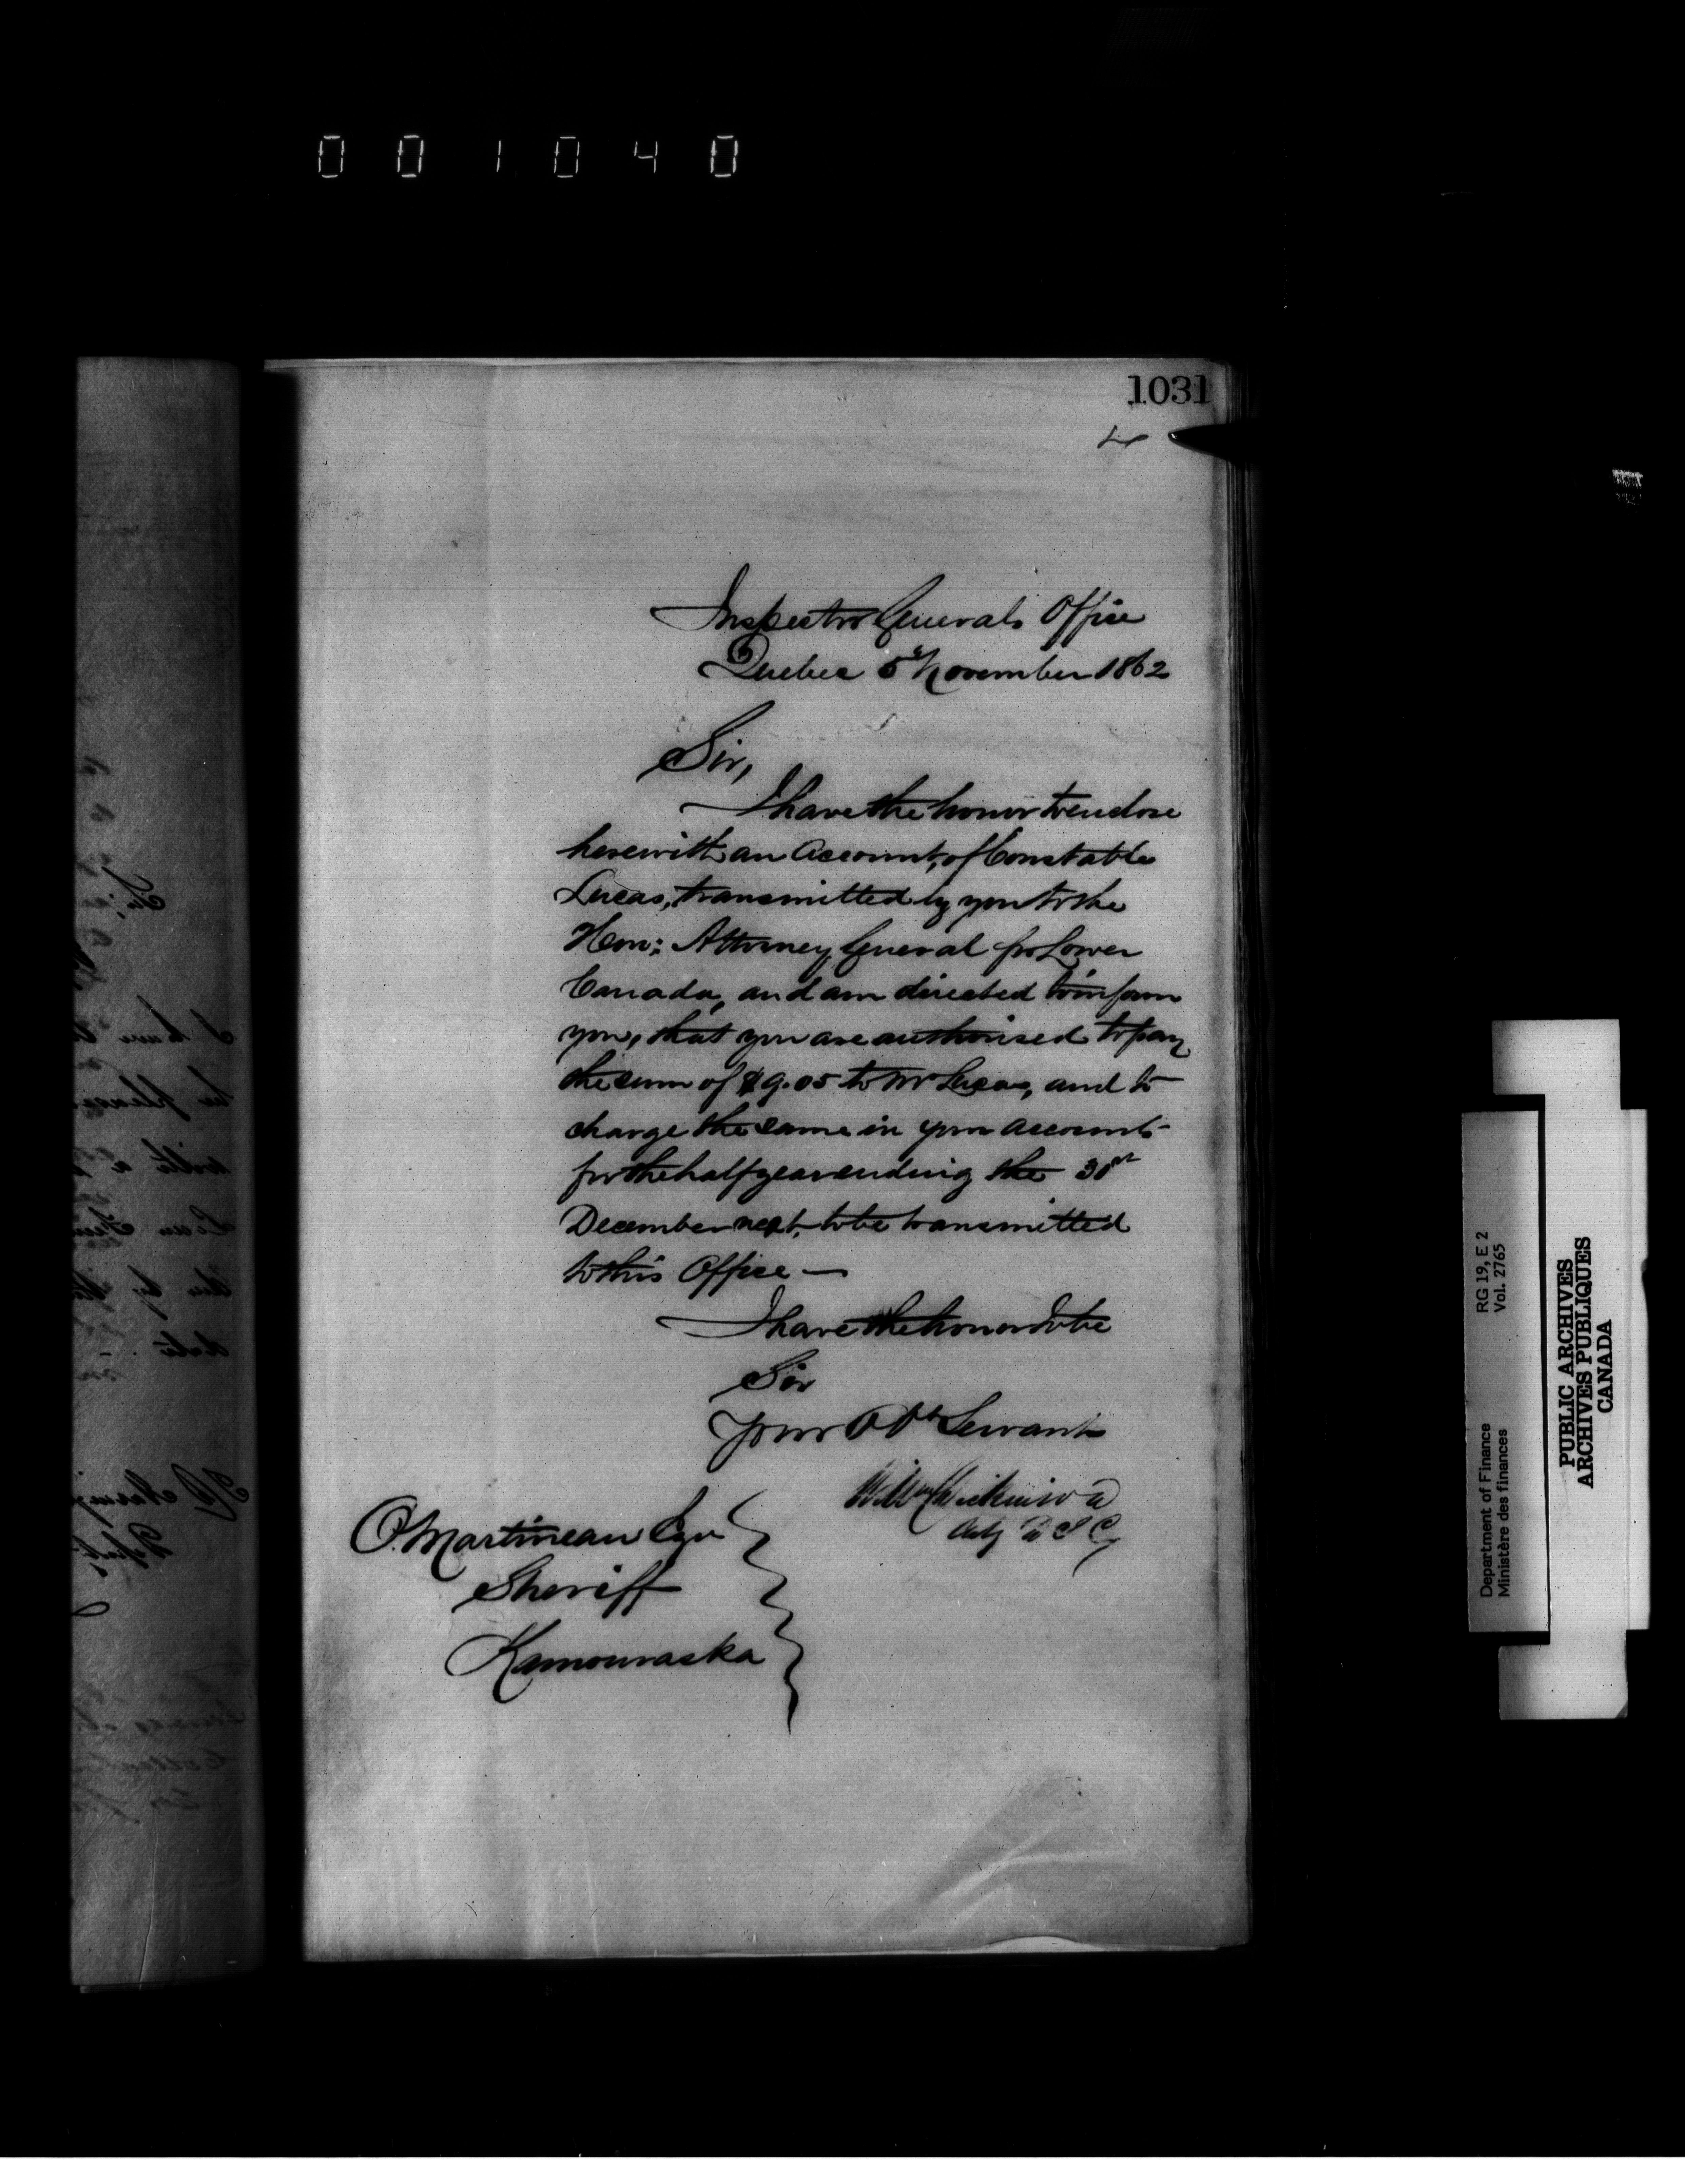 001040
1031
Inspector Generals Office
Quebec 5th November 1862
Sir,
I have the honor to enclose
herewith an Account, of Constable
Lucas, transmitted by you to the
Hon: Attorney General for Lower
Canada, and am directed to inform
you, that you are authorised to pay
the sum of $9.05 to Mr Lucas, and to
charge the same in your Accounts
for the half year ending the 31st
December next, to be transmitted
to this Office —
I have the honor to be
Sir
Your Ob St Servant
Wm Dickinson
O. Martineau Esqr
Sheriff
Kamouraska
Department of Finance RG 19, E 2
Ministère des finances Vol. 2765
PUBLIC ARCHIVES
ARCHIVES PUBLIQUES
CANADA